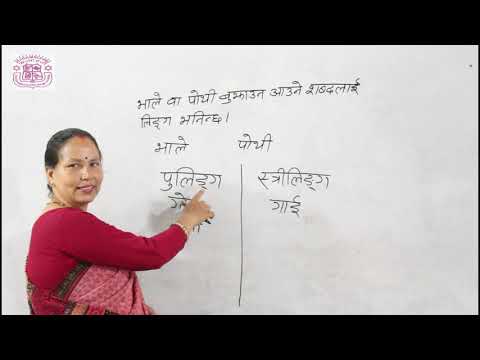 भाले वा पोथी बुझाउन आउने शब्दलाई
लिङ्ग भनिन्छ।
भाले पोथी
पुलिङ्ग स्त्रीलिङ्ग
गाई